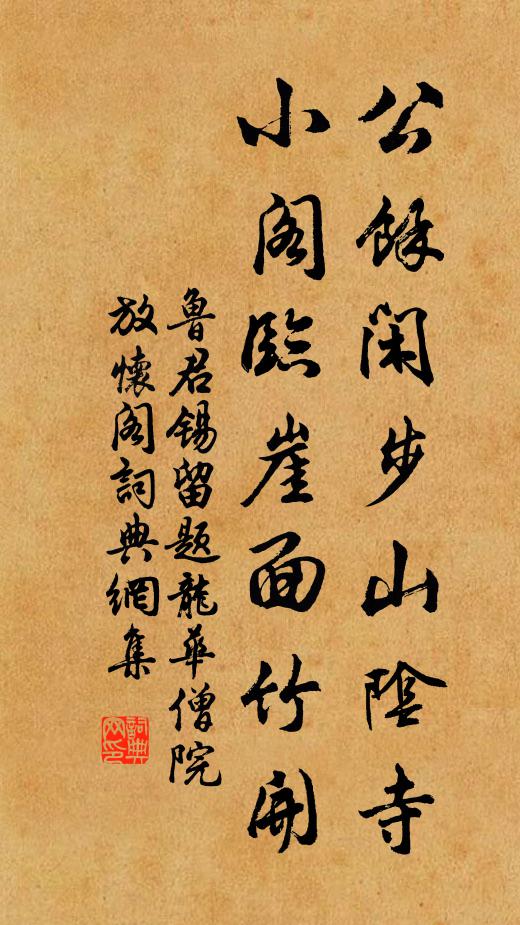 公餘閑步山陰寺
小閣臨崖面竹開
魯君錫留題龍華僧院
放懷閣詞典網集
詞典網印